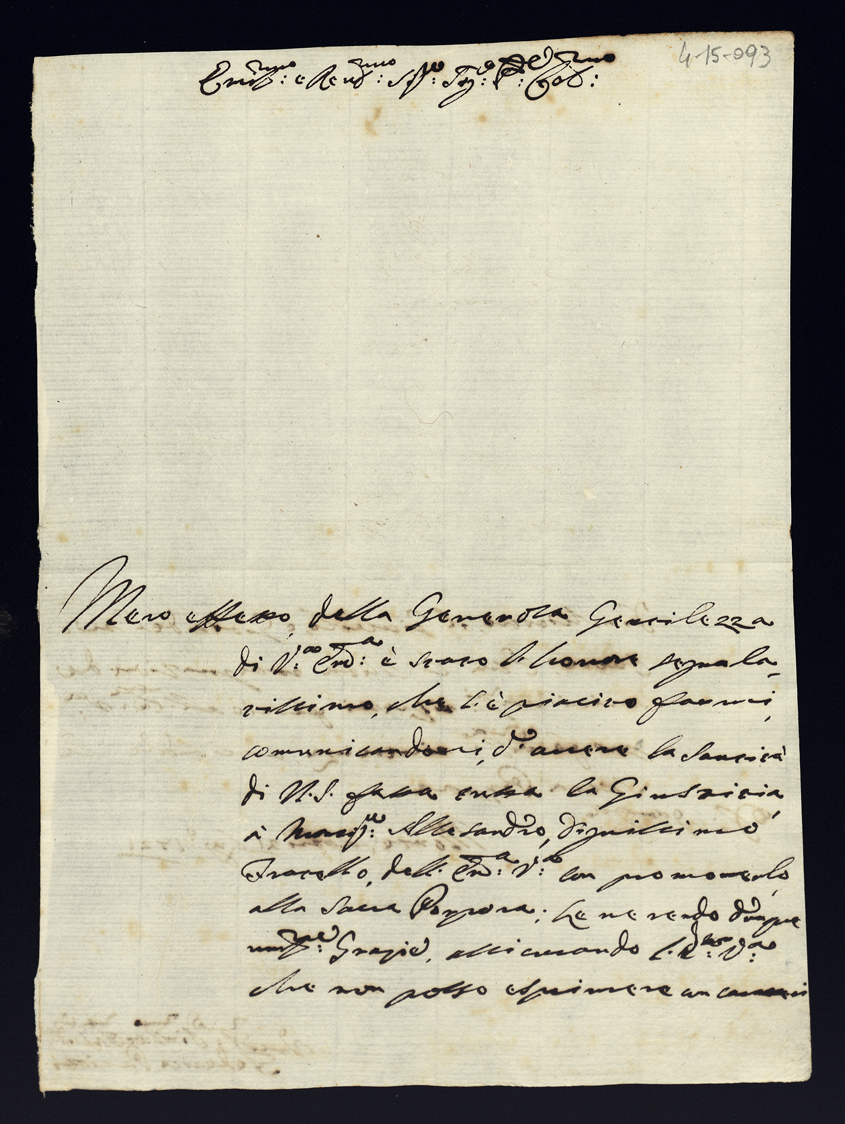 4-15-093
Em:mo e Rev:mo Sig:re Sig:re P:ne Col:mo
Mero effetto, della Generosa Gentilezza
di V:a Em:a è stato l'honore segnala-
tissimo, che l'è piaciuto farmi,
comunicandomi, d'avere la Santità
di N.S. fatta tutta la Giustitia,
à Monsig:re Allesandro, dignissimo
Fratello, dell' Em:a V:a con promoverlo
alla Sacra Porpora; Le ne rendo dunque
umil:me Grazie, assicurando l'Em:a V:a
che non posso esprimere con